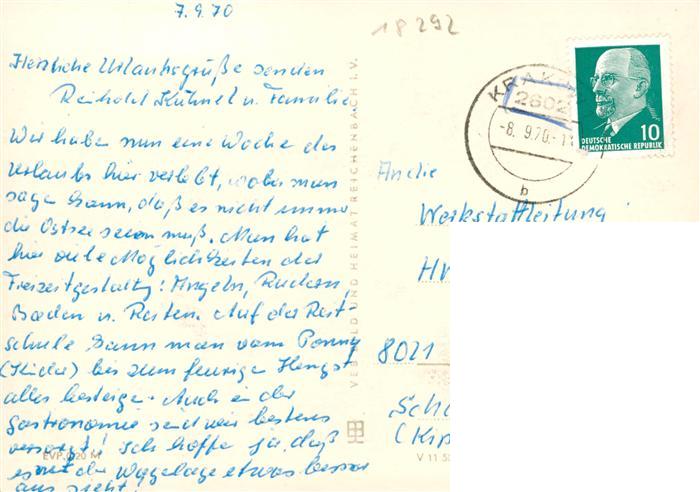 7.9.70
18292
Herzliche Urlaubsgrüße senden
Reinhold Kühnel u. Familie.
Wir haben nun eine Woche des
Urlaubs hier verlebt, wobei man
sagen kann, daß es nicht immer
die Ostsee sein muß. Man hat
hier viele Möglichkeiten der
Freizeitgestaltg: Angeln, Rudern,
Baden u. Reiten. Auf der Reit-
schule kann man vom Ponny
(Kinder) bis zum feurigen Hengst
alles besteigen. Auch in der
Gastronomie sind wir bestens
versorgt! Ich hoffe ja, daß
es mit der etwas besser
aus sieht!
EVP 0,20 M
VEB BILD UND HEIMAT REICHENBACH I. V.
V 11 5
KRAK
2602
-8. 9.70-1
b
10
DEUTSCHE
DEMOKRATISCHE REPUBLIK
An die
Werkstattleitung
8021